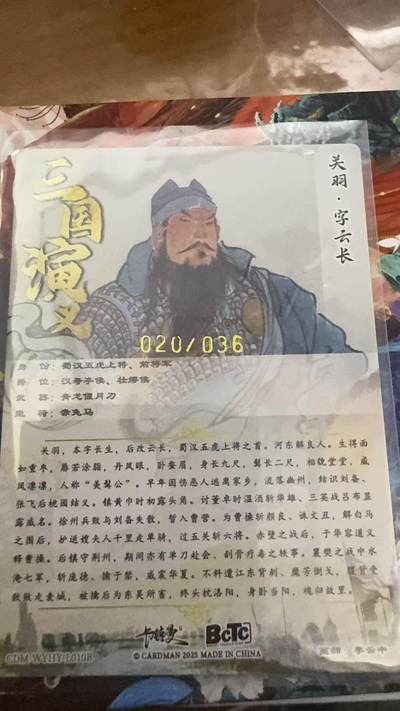 三国演义
关羽·字云长
020/036
身 份：蜀汉五虎上将、前将军
爵 位：汉寿亭侯、壮缪侯
武 器：青龙偃月刀
坐 骑：赤兔马
关羽，本字长生，后改云长，蜀汉五虎上将之首。河东解良人。生得面
如重枣，唇若涂脂，丹凤眼，卧蚕眉，身长九尺，髯长二尺，相貌堂堂，威
风凛凛，人称“美髯公”。早年因伤恶人逃离家乡，流落幽州，结识刘备、
张飞后桃园结义。镇黄巾时初露头角。讨董卓时温酒斩华雄、三英战吕布显
露威名。徐州兵败与刘备失散，暂入曹营。为曹操斩颜良、诛文丑，解白马
之围后，护送嫂夫人千里走单骑，过五关斩六将。赤壁之战后，于华容道义
释曹操。后镇守荆州，期间亦有单刀赴会、刮骨疗毒之轶事。襄樊之战中水
淹七军，斩庞德、擒于禁，威震华夏。不料遭江东背刺、糜芳倒戈，腹背受
敌败走麦城，被擒后为东吴所害，终头枕洛阳，身卧当阳，魂归故里。
卡特曼 BCTC
© CARDMAN 2025 MADE IN CHINA
CDM-WYHY-L010B
画师 李云中